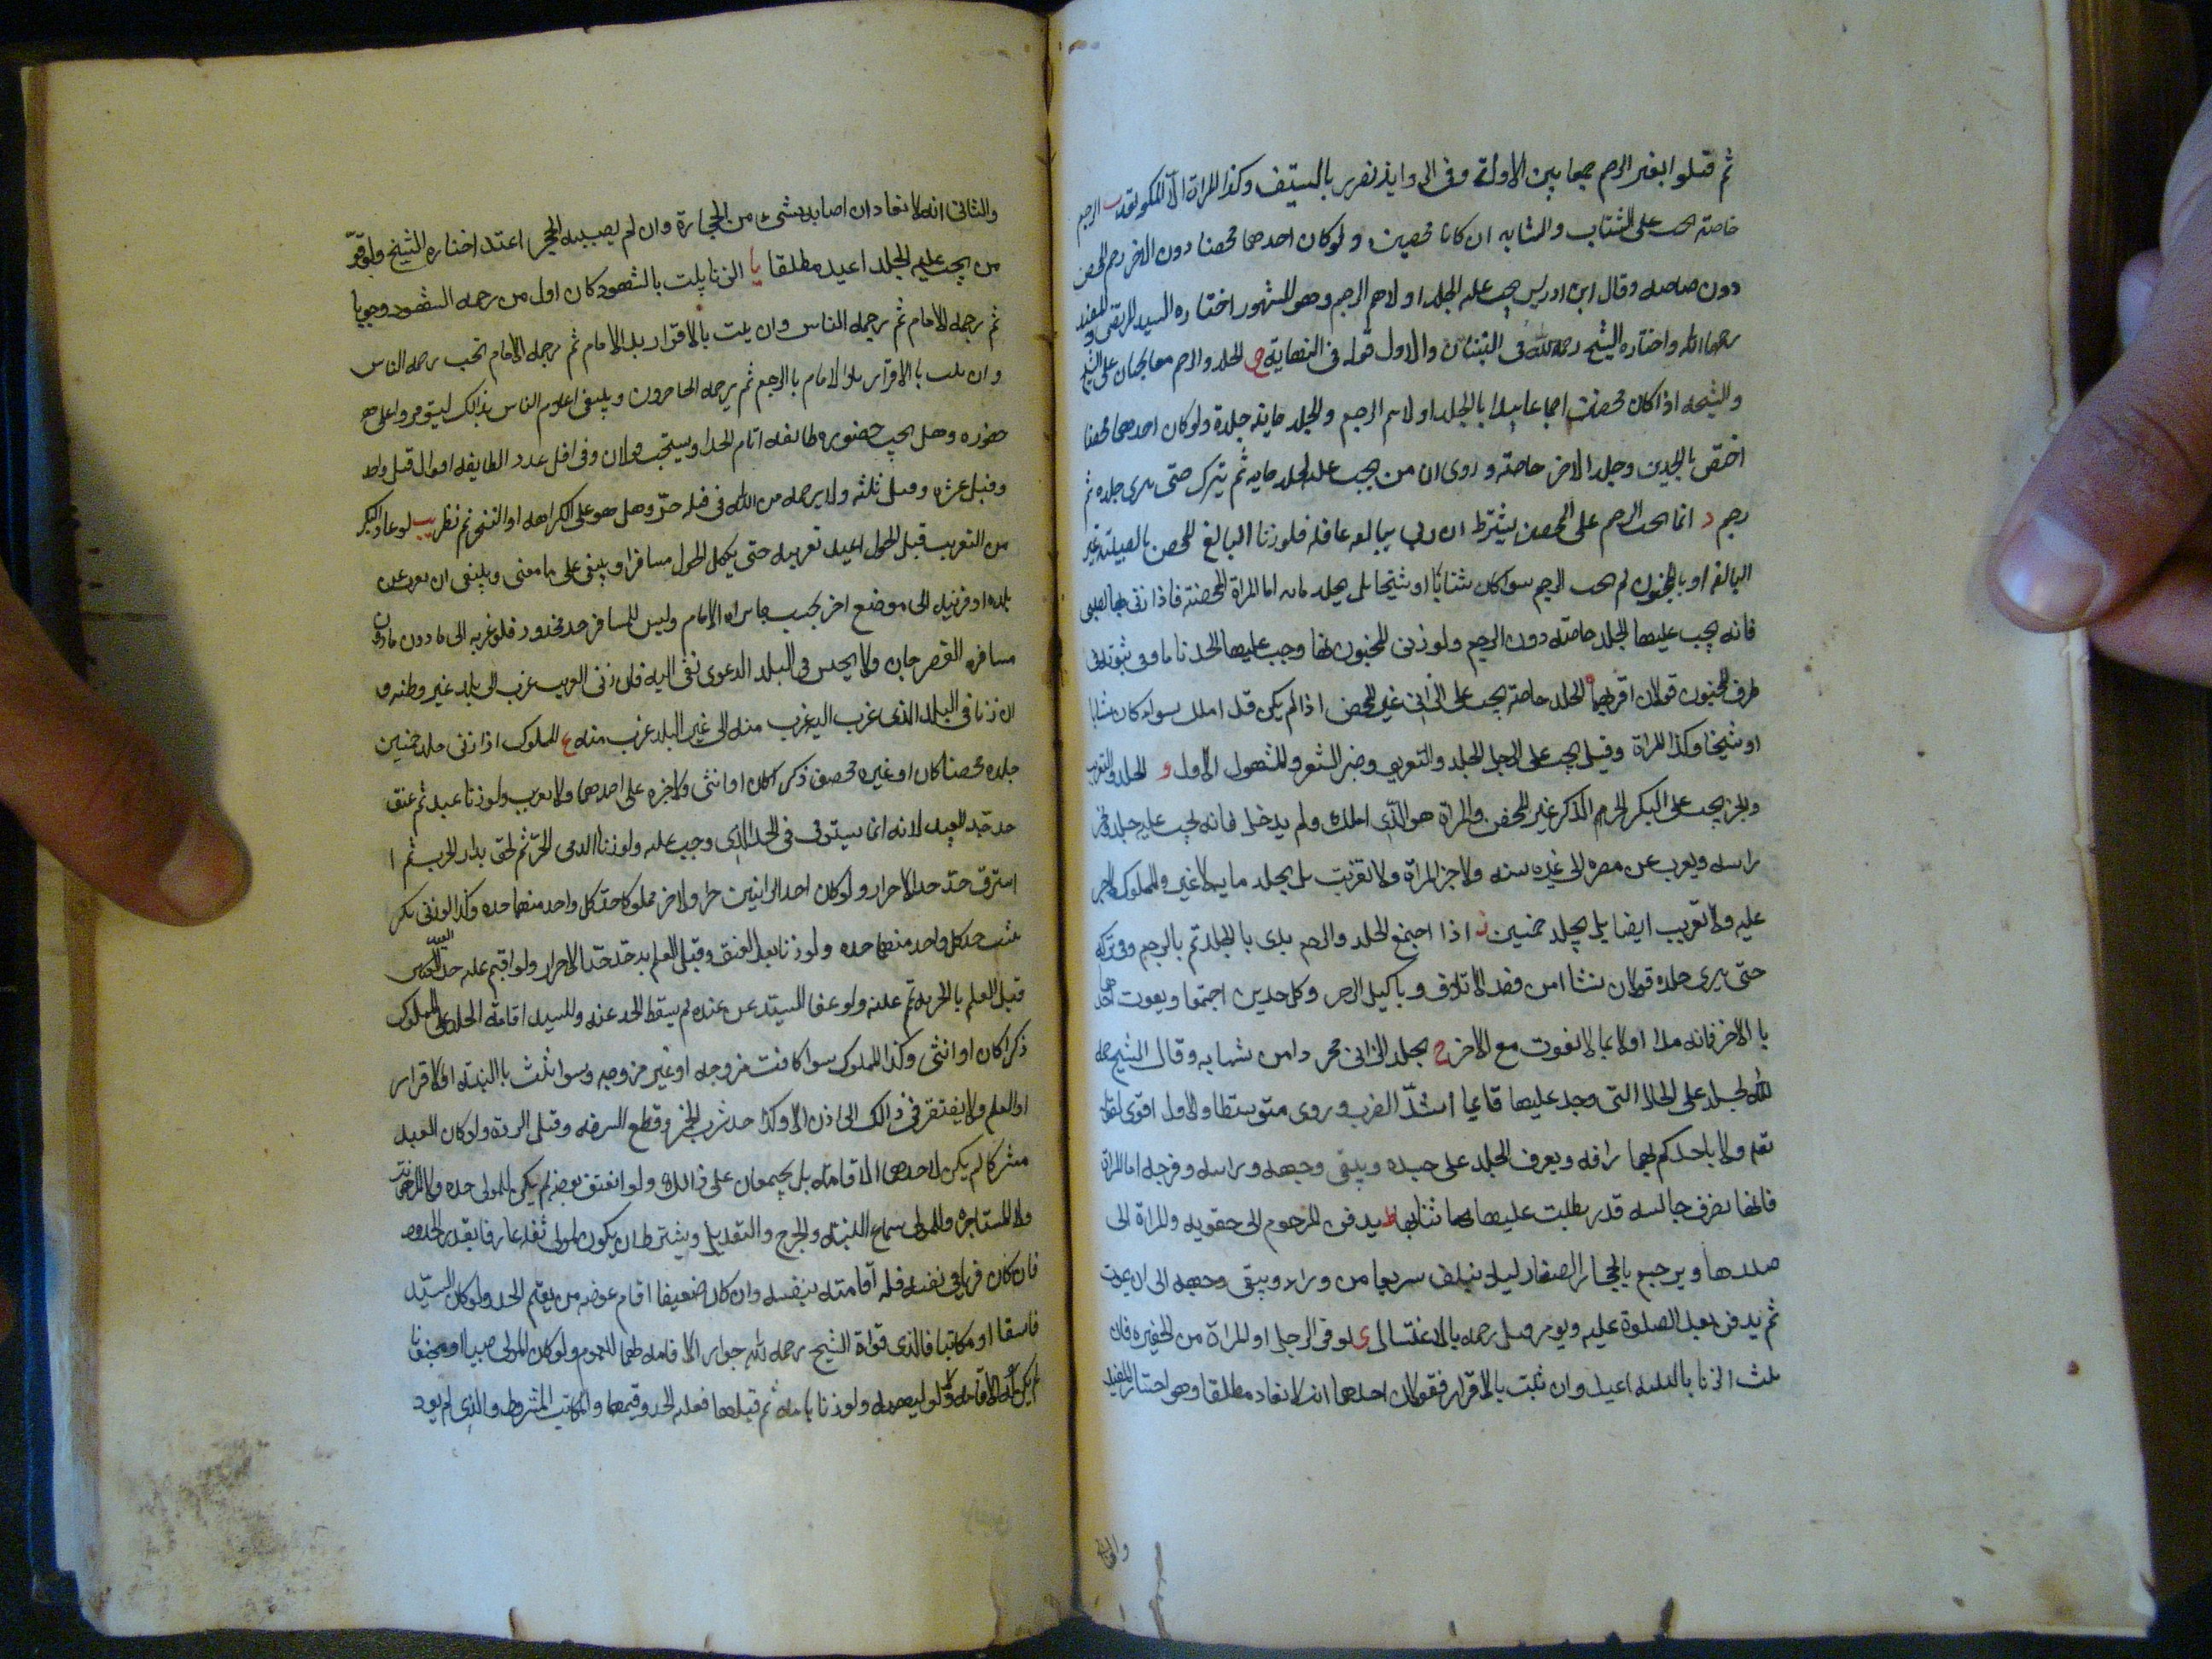 ثم قتلوا بغير الرجم جمعا بين الادلة وفى الروايه نضرب بالسيف وكذا المراة الا المكره ب الرجم
خاصته يجب على الشاب والشابه ان كانا محصنين ولو كان احدهما محصنا دون الاخر رجم المحصن
دون صاحبه وقال ابن ادريس يجب عليه الجلد اولا ثم الرجم وهو المشهور اختاره السيد المرتضى والمفيد
رحمهما الله واختاره الشيخ رحمه الله فى التبيان والاول قوله فى النهاية ج الجلد والرجم معا يجبان على الشيخ
والشيخه اذا كان محصنين اجماعا يبدا بالجلد اولا ثم الرجم والجلد مايه جلدة ولو كان احدهما محصنا
اختص بالحدين وجلد الاخر خاصته وروى ان من يجب عليه الجلد مايه ثم يترك حتى يبرى جلده ثم
رجم د انما يجب الرجم على المحصن بشرط ان يزنى ببالغه عاقله فلو زنا البالغ المحصن بالصبيته غير
البالغه او بالمجنونه لم يجب الرجم سوا كان شابا او شيخا بل يجلد مايه اما المراة المحصنته فاذا زنى بها الصبى
فانه يجب عليها الجلد خاصته دون الرجم ولو زنى المجنون بها وجب عليها الحد تاما وفى ثبوته فى
طرف المجنون قولان اقربهما ه الجلد خاصته يجب على الزانى غير المحصن اذا لم يكن قد املك سواء كان شابا
او شيخا وكذا المراة وقيل يجب على الرجل الجلد والتغريب وجز الشعر والمشهور الاول و الجلد والتغريب
والجز يجب على البكر الحر الذكر غير المحصن والمراة هو الذى املك ولم يدخل فانه يجب عليه جلد وجز
راسه ويغرب عن مصره الى غيره سنه ولا جز المراة ولا تغريب بل يجلد مايه لا غير والمملوك لا جز
عليه ولا تغريب ايضا بل يجلد خمسين ز اذا اجتمع الجلد والرجم بدى بالجلد ثم بالرجم وفى تركه
حتى يبرى جلده قولان نشا من قصد الاتلاف وتاكيد الزجر وكل حدين اجتمعا ويفوت احدهما
بالاخر فانه يبدا اولا بما لا يفوت مع الاخر ح يجلد الزانى مجردا من ثيابه وقال الشيخ رحمه
الله يجلد على الحال التى وجد عليها قائما اشد الضرب وروى متوسطا والاول اقوى لقوله
تعالى ولا ياخذكم بهما رافه ويفرق الجلد على جسده ويتقى وجهه وراسه وفرجه اما المراة
فانها تضرب جالسه قد ربطت عليها ثيابها ط يدفن المرجوم الى حقويه والمراة الى
صدرها ويرجم بالحجار الصغار ليلا يتلف سريعا من وراء ويتقى وجهه الى ان يموت
ثم يدفن بعد الصلوة عليه ويومر قبل رجمه بالاغتسال ى لو فر الرجل او المراة من الحفيره فان
ثبت الزنا بالبينه اعيد وان ثبت بالاقرار فقولان احدهما انه لا يعاد مطلقا وهو اختيار المفيد
والثانى
والثانى انه لا يعاد ان اصابه شىء من الحجارة وان لم يصيبه الحجر اعيد اختاره الشيخ ولو فر
من يجب عليه الجلد اعيد مطلقا يا الزنا يثبت بالشهود كان اول من رجمه الشهود وجوبا
ثم يرجمه الامام ثم يرجمه الناس وان ثبت بالاقرار بدا الامام ثم يرجمه الامام يجب رجمه الناس
وان ثبت بالاقرار بدا الامام بالرجم ثم يرجمه الحاضرون وينبغى اعلام الناس بذالك ليتوفروا على
حضوره وهل يجب حضوره طايفه اقام الحد او يستحب قولان وفى اقل عدد الطايفه اقوال قيل واحد
وقيل عشره وقيل ثلثه ولا يرجمه من لله فى قبله حد وهل هو على الكراهه او التحريم نظر يب لو عاد البكر
من التغريب قبل الحول اعيد تغريبه حتى يكمل الحول مسافرا ويبنى على ما مضى وينبغى ان يغرب عن
بلده او قريته الى موضع اخر بحسب ما يراه الامام وليس للمسافر حد محدود فلو غربه الى ما دون
مسافه القصر جاز ولا يحبس فى البلد الذى نفى اليه فان زنى الغريب غرب الى بلد غير وطنه و
ان زنا فى البلد الذى غرب اليه غرب منه الى غير البلد غرب منه ع المملوك اذا زنى جلد خمسين
جلده محصنا كان او غيره محصن ذكرا كان او انثى ولا جز على احدهما ولا تغريب ولو زنا عبد ثم عتق
حد حد العبيد لانه انما يستوفى فى الحد الذى وجب عليه ولو زنا الذمى الحر ثم لحق بدار الحرب ثم ا
استرق حد حد الاحرار ولو كان احد الزانيين حرا والاخر مملوكا حد كل واحد منهما حده وكذا لو زنى بكر
بثيب حد كل واحد منهما حده ولو زنا بعد العتق وقبل العلم به حد حد الاحرار ولو اقيم عليه حد العبيد
قبل العلم بالحريه تم عليه ولو عفا السيد عن عبده لم يسقط الحد عنه وللسيد اقامة الحد على المملوك
ذكرا كان او انثى وكذا المملوك سوا كانت مزوجه او غير مزوجه وسوا ثبت بالبينته او الاقرار
او العلم ولا يفتقر فى ذالك الى اذن الا وكذا حد شرب الخمر وقطع السرقه وقتل الردة ولو كان العبد
مشتركا لم يكن لاحدهما الاقامته بل يجتمعان على ذالك ولو انعتق بعضه لم يكن للمولى حده
ولا المستاجره وللمولى سماع البينته والجرح والتعديل ويشترط ان يكون المولى ثقه عارفا بقدر الحدود
فان كان قويا فى نفسه فله اقامته بنفسه وان كان ضعيفا اقام عوضه من يقيم الحد ولو كان السيد
فاسقا او مكاتبا فالذى قواه الشيخ رحمه الله جواز الاقامه لهما للعموم ولو كان المولى صبيا او مجنونا
لم يكن له الاقامه ولا لوليهما ولو زنا بامه ثم قتلها فعليه الحد وقيمتها والمكاتب المشروط والذى لم يود